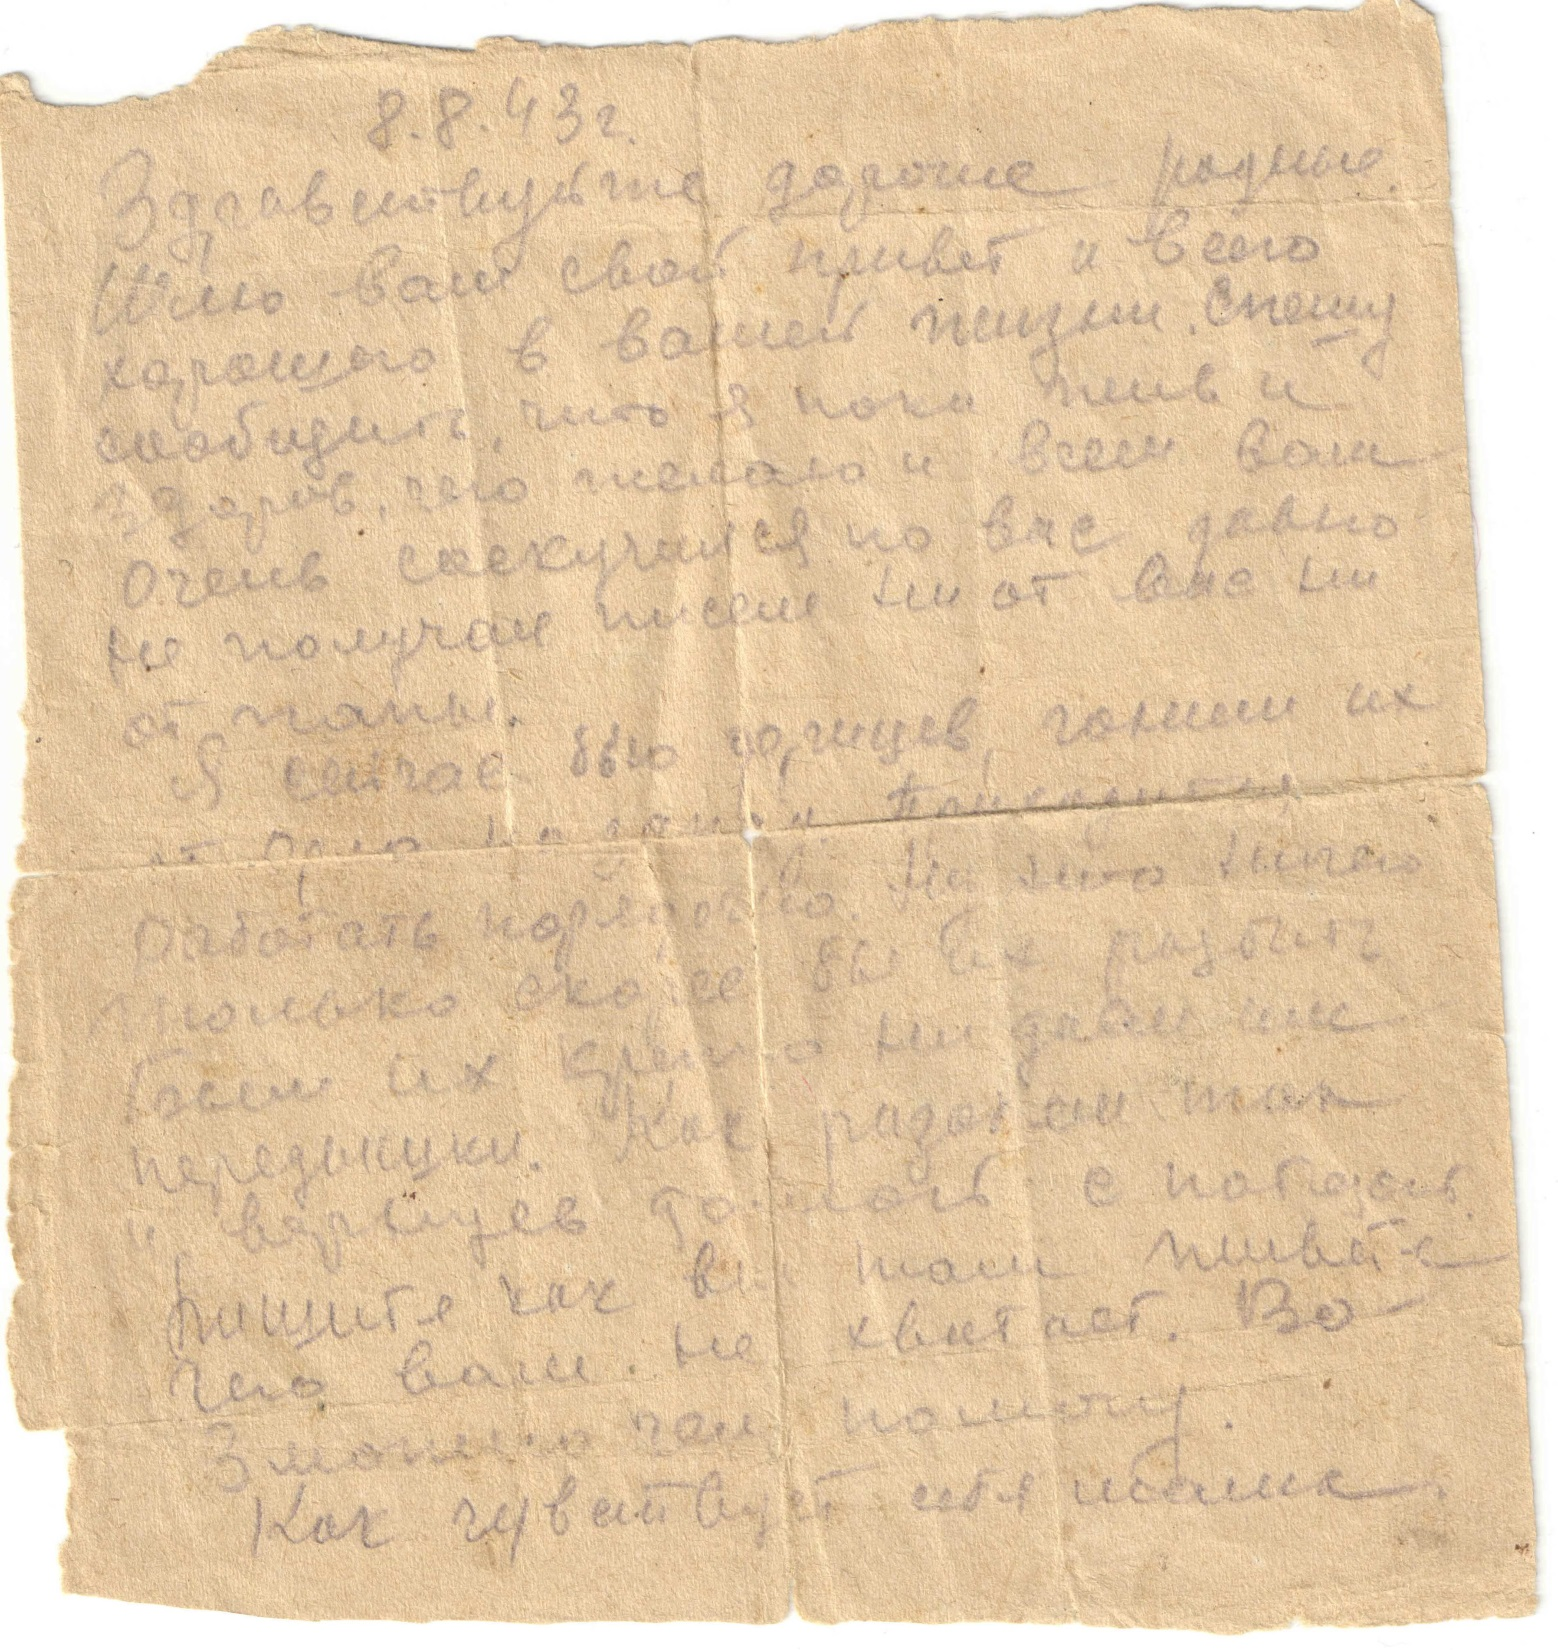 8.8.43г.
Здравствуйте дорогие родные.
Шлю вам свой привет и всего
хорошего в вашей жизни. Спешу
сообщить, что я пока жив и
здоров, чего желаю и всем вам
Очень соскучился по вас давно
не получал писем ни от вас ни
от папы.
Я сейчас бью фрицев, гоним их
от Орла на запад Приходится
работать порядочно. Ни что ничего
только скорее бы их разбить
Бьем их крепко ни даем им
передышки. Как
домой с победой.
Пишите как вы там живете
чего вам не хватает. Во
зможно чем помогу.
Как чувствует себя мама